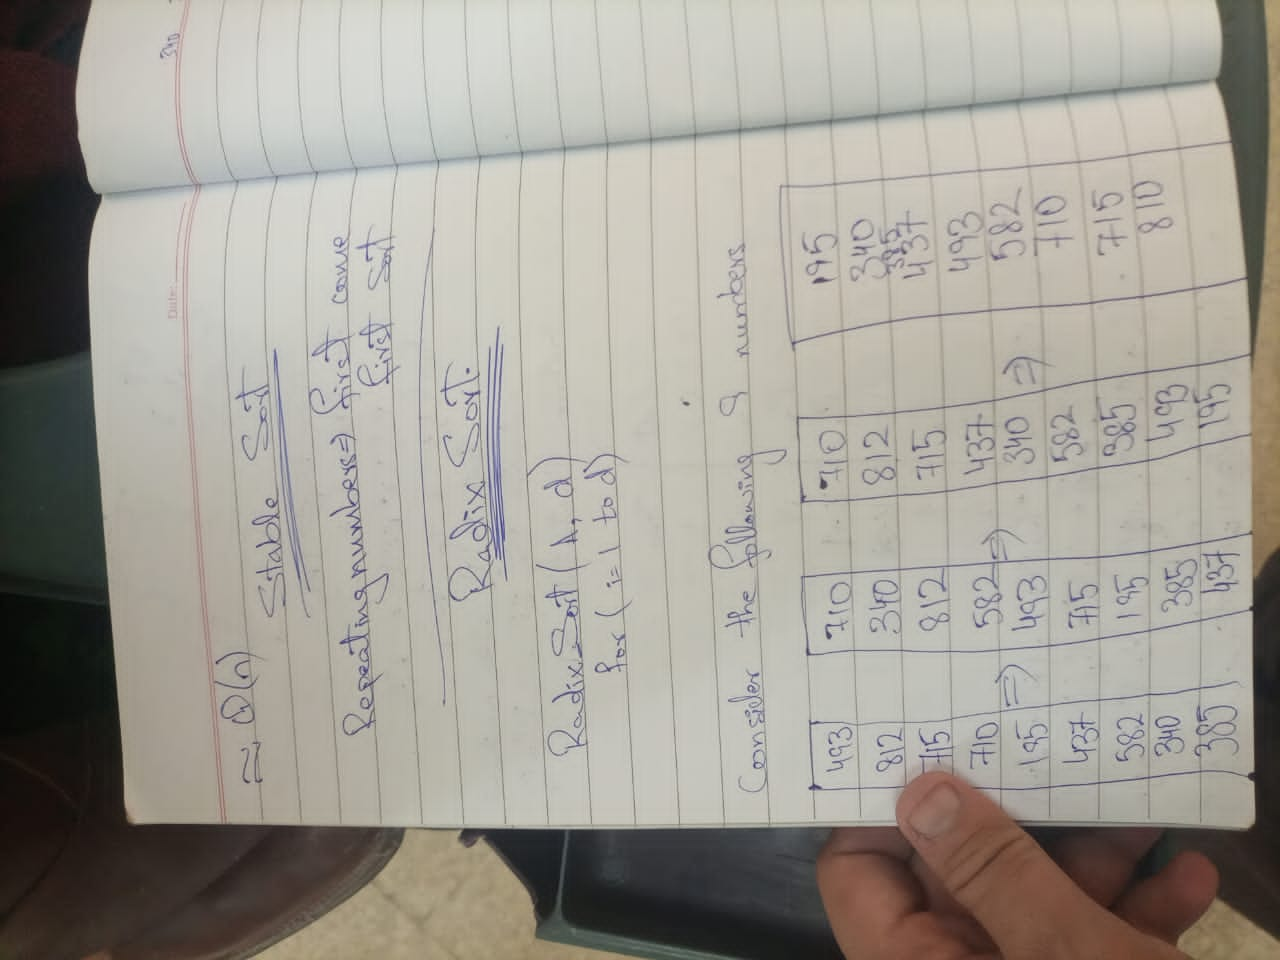 340
Date:
≈ Θ(n)
Stable Sort
Repeating numbers ⇒ first come
first sort
Radix Sort.
Radix-Sort (A, d)
for (i = 1 to d)
Consider the following 9 numbers
493 710 710 195
812 340 812 340
385
715 812 715 437
710 582 437 493
195 ⇒ 493 ⇒ 340 ⇒ 582
437 715 582 710
582 195 385 715
340 385 493 810
385 437 195